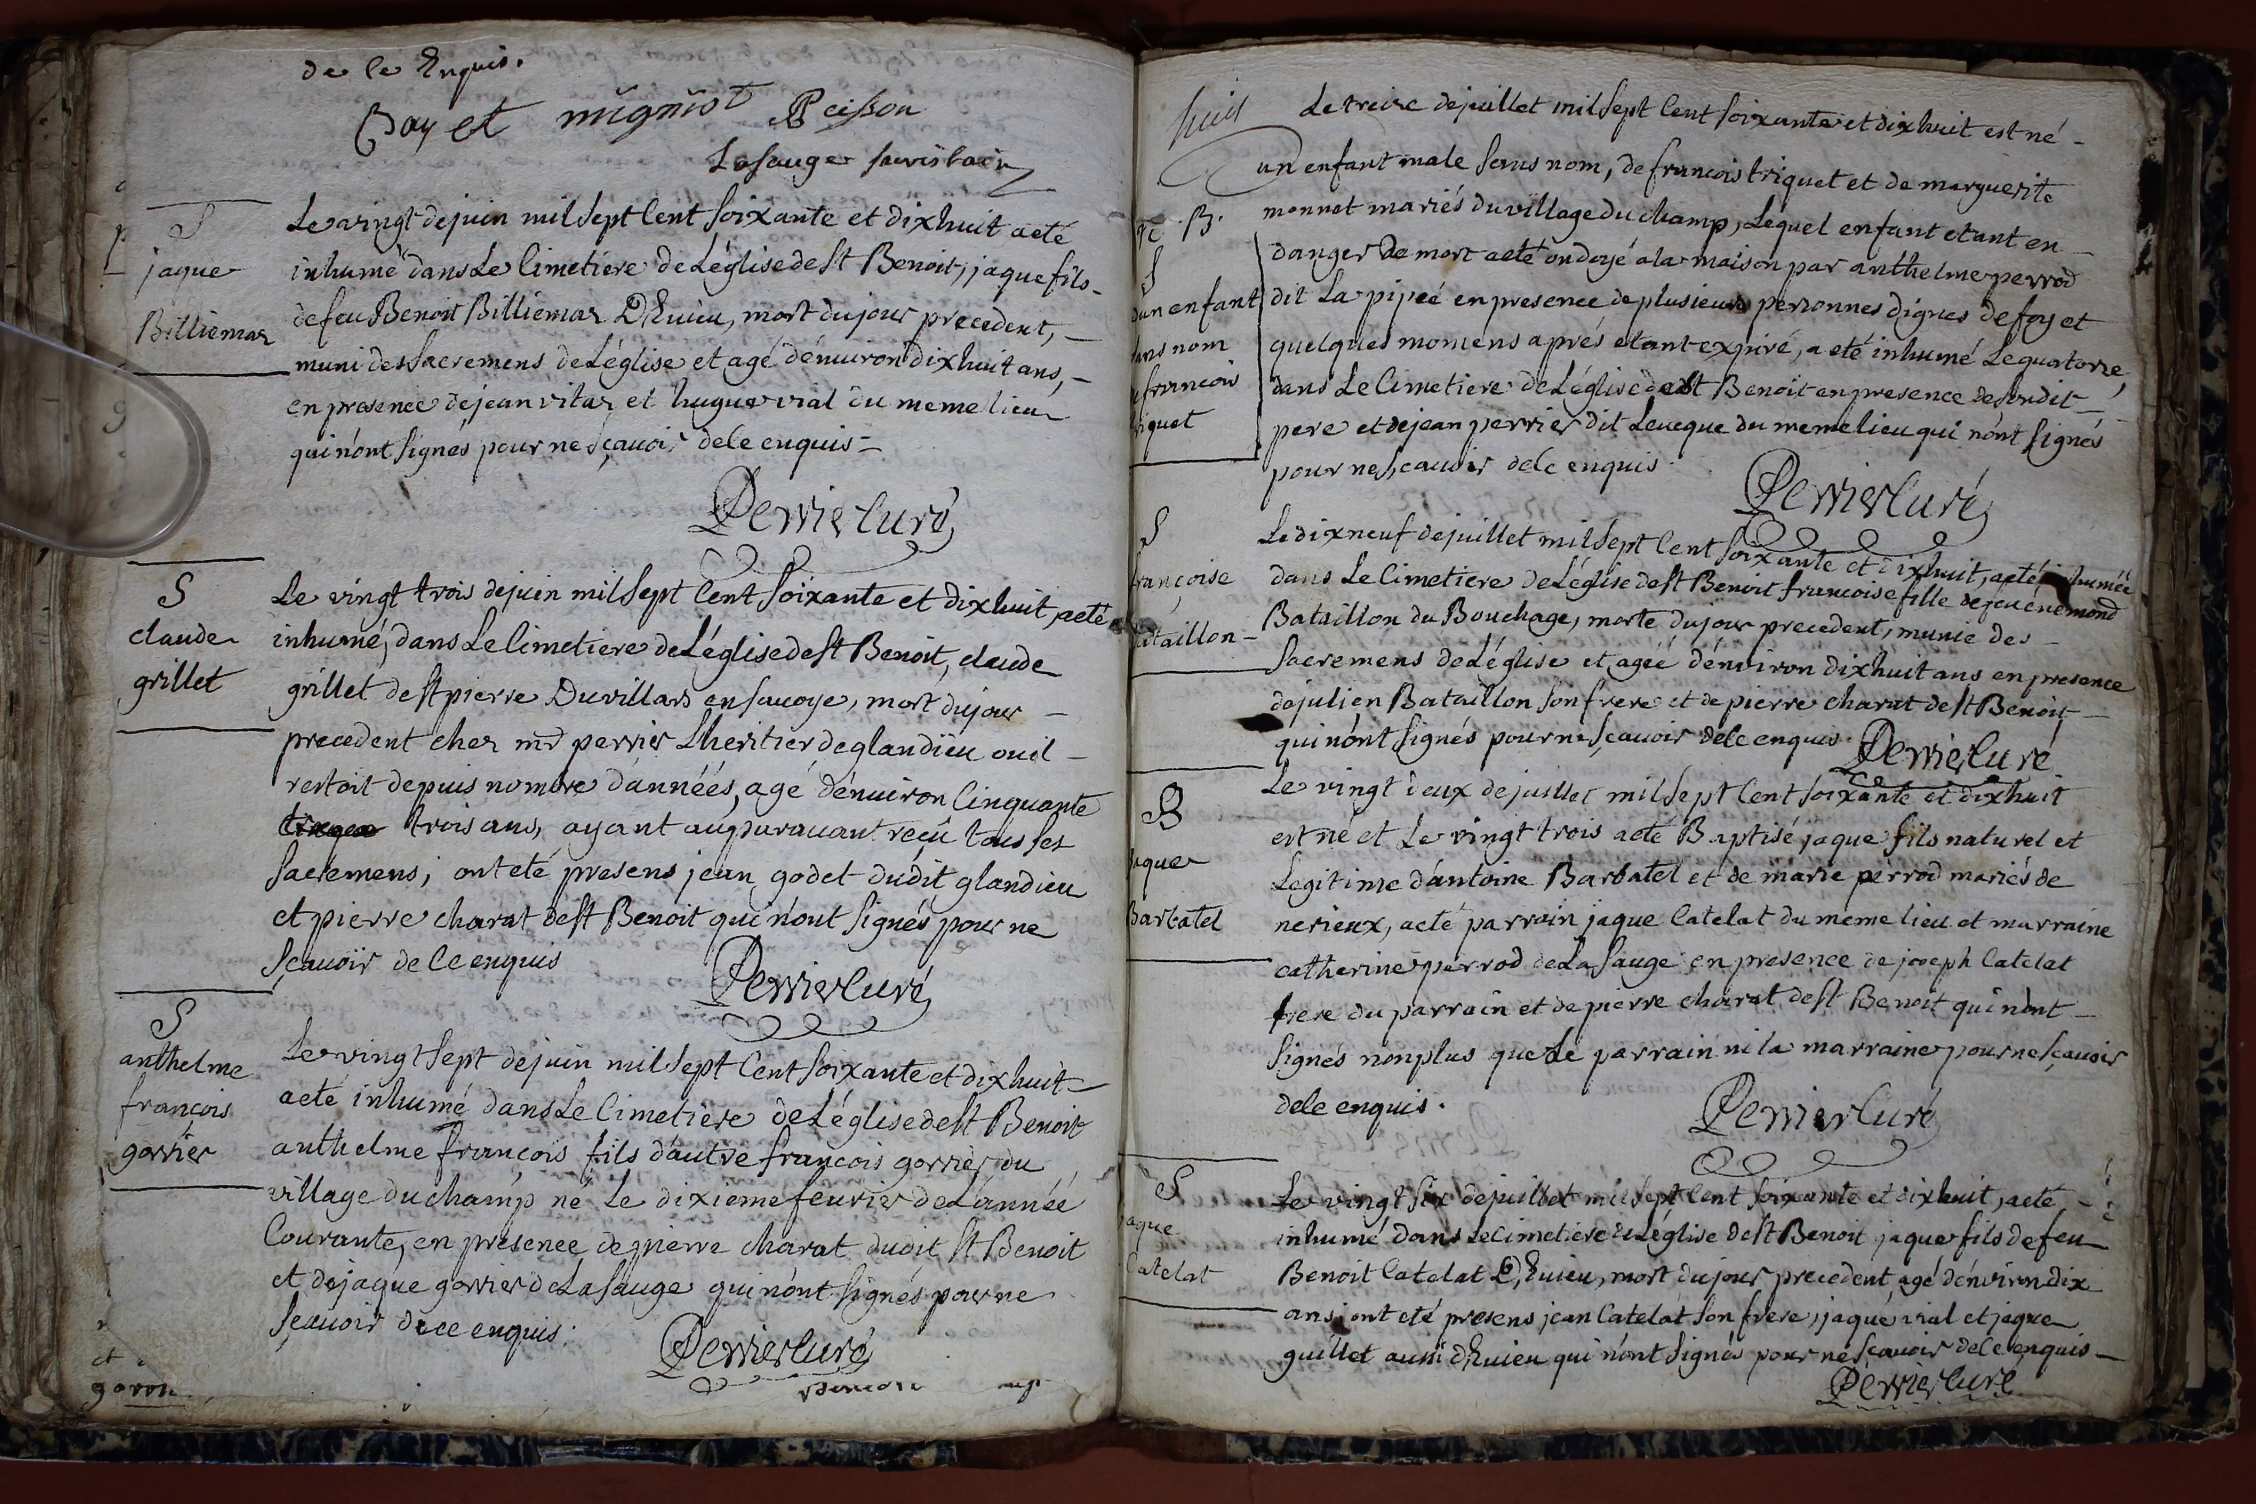 de ce Enquis.
Bay et mignot Peisson
Lasauge
S
jaque
Billiemaz
Le vingt de juin mil sept Cent soixante et dixhuit a eté
inhumé dans Le Cimetiere de L'église de st Benoit, jaque fils
de feu Benoit Billiemaz D'huieu, mort du jour precedent,
muni des sacremens de L'église et agé d'énuiron dixhuit ans,
en presence de jean vitaz et hugue vial du meme lieu
qui n'ont signés pour ne sçauoir de ce enquis
Perrier Curé
S
claude
grillet
Le vingt trois de juin mil sept Cent soixante et dixhuit, a eté
inhumé, dans Le Cimetiere de L'église de st Benoit, claude
grillet de st pierre Du villard en sauoye, mort du jour
precedent chez md perrier L'heritier de glandieu ou il
restoit depuis nombre d'annéés, agé d'énuiron Cinquante
trois ans, ayant auparauant reçû tous ses
sacremens; ont eté presens jean godet dudit glandieu
et pierre charat de st Benoit qui n'ont signés pour ne
sçauoir de ce enquis
Perrier Curé
S
anthelme
françois
gorrier
Le vingt sept de juin mil sept Cent soixante et dixhuit
a eté inhumé dans Le Cimetiere de L'église de st Benoit
anthelme françois fils d'autre françois gorrier du
village du champ né Le dixieme feurier de L'année
Courante, en presence de pierre charat dudit st Benoit
et de jaque gorrier de La sauge qui n'ont signés pour ne
sçauoir de ce enquis.
Perrier Curé
et
goron
Le treize de juillet mil sept Cent soixante et dixhuit est né
un enfant male sans nom, de francois triquet et de marguerite
monnet mariés du village du champ, Lequel enfant etant en
danger De mort a eté ondoyé a la maison par anthelme perrod
dit La pipeé en presence de plusieurs personnes dignes de foy et
quelques momens aprés etant expiré, a eté inhumé Le quatorze,
dans Le Cimetiere de L'église de st Benoit en presence de sondit
pere et de jean perrier dit Leueque du meme lieu qui n'ont signés
pour ne sçauoir de ce enquis.
B.
S
d'un enfant
sans nom
de francois
triquet
Perrier Curé
S
françoise
Bataillon
Le dixneuf de juillet mil sept Cent soixante et dixhuit, a eté inhuméé
dans Le Cimetiere de L'église de st Benoit francoise fille de feu énemond
Bataillon du Bouchage, morte du jour precedent, munie des
sacremens de L'église et agéé d'énuiron dixhuit ans en presence
de julien Bataillon son frere et de pierre charat de st Benoit
qui n'ont signés pour ne sçauoir de ce enquis.
Perrier Curé
B
jaque
Barbatel
Le vingt deux de juillet mil sept Cent soixante et dixhuit
est né et Le vingt trois a eté Baptisé jaque fils naturel et
Legitime d'antoine Barbatel et de marie perrod mariés de
nerieux, a eté parrain jaque Catelat du meme lieu et marraine
catherine perrod de La sauge en presence de joseph Catelat
frere du parrain et de pierre charat de st Benoit qui n'ont
signés nonplus que Le parrain ni la marraine pour ne sçauoir
de ce enquis.
Perrier Curé
S
jaque
Catelat
Le vingt six de juillet mil sept Cent soixante et dixhuit, a eté
inhumé dans Le Cimetiere de L'église de st Benoit jaque fils de feu
Benoit Catelat D'huieu, mort du jour precedent agé d'énuiron dix
ans; ont eté presens jean Catelat son frere, jaque vial et jaque
guillet aussi d'huieu qui n'ont signés pour ne sçauoir de ce enquis
Perrier Curé